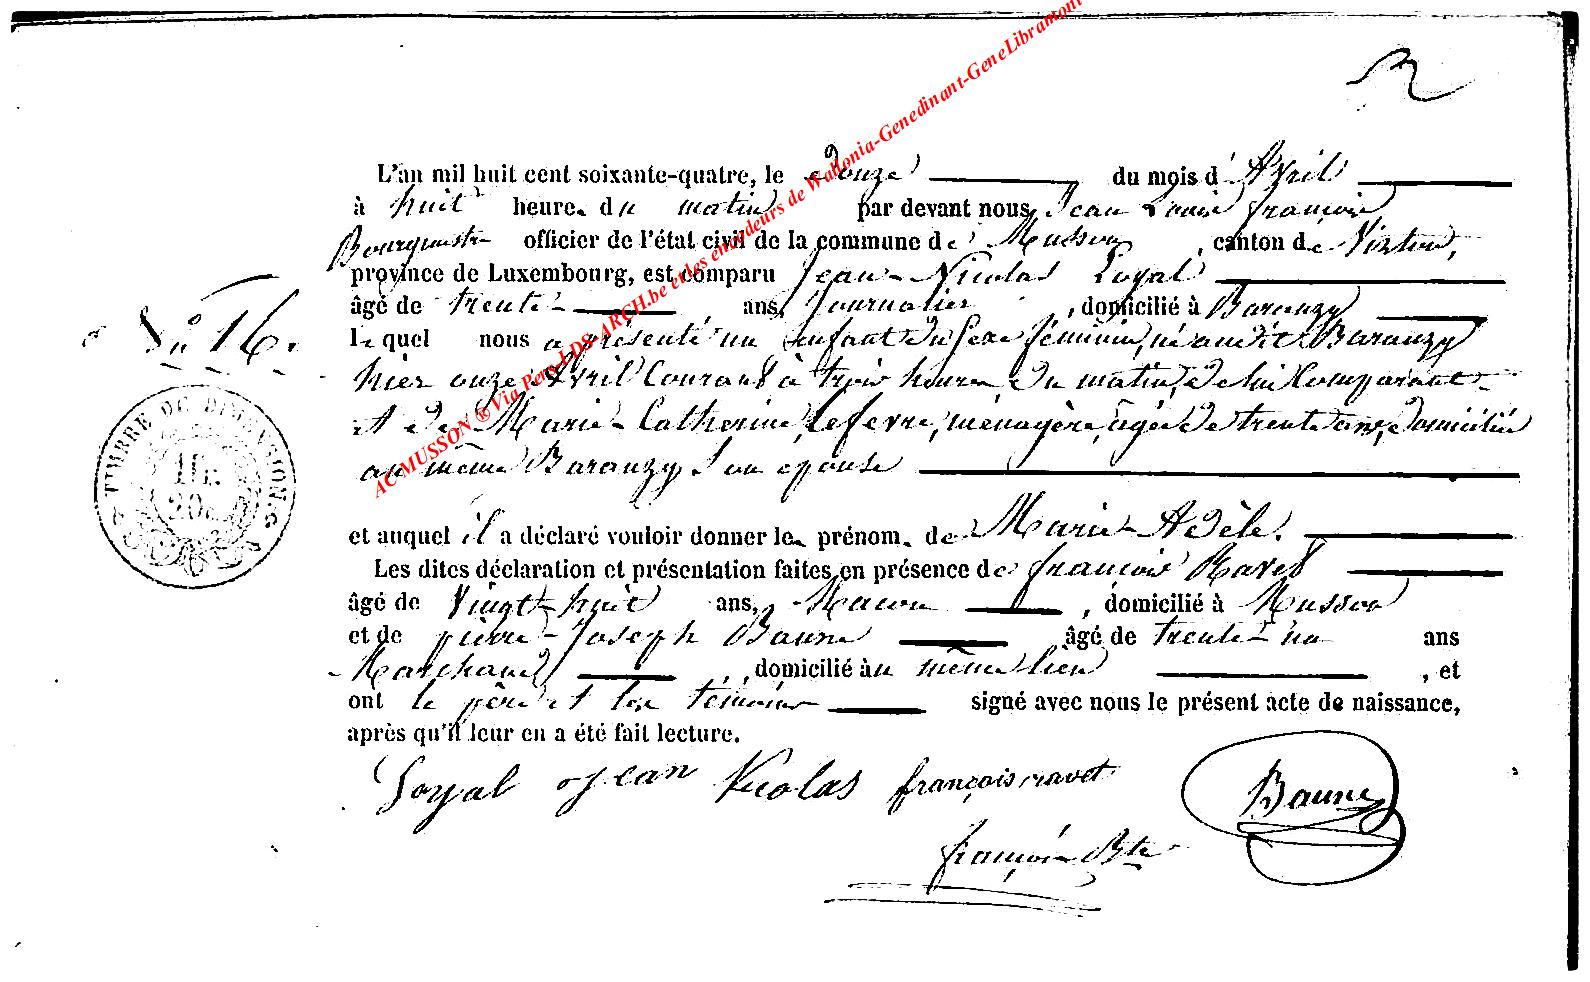 L'an mil huit cent soixante-quatre, le douze du mois d'Avril
à huit heure. du matin par devant nous Jean Louis françois
Bourgmestre officier de l'état civil de la commune de Musson, canton de Virton,
province de Luxembourg, est comparu Jean-Nicolas Loyal
N° 16.
âgé de trente ans, Journalier, domicilié à Baranzy
lequel nous a présenté un enfant du sexe féminin, né audit Baranzy
hier onze Avril Courant à trois heures du matin, de lui Comparant
et de Marie-Catherine Lefevre, ménagère, âgée de trente ans, domiciliée
au même Baranzy son épouse
TIMBRE DE DIMENSION. G
1 fr.
20 c.
et auquel il a déclaré vouloir donner le prénom de Marie-Adèle.
Les dites déclaration et présentation faites en présence de françois Ravet
âgé de Vingt-huit ans, Macon, domicilié à Musson
et de pierre-Joseph Baune âgé de trente-un ans
Marchand, domicilié au même lieu, et
ont le père et les témoins signé avec nous le présent acte de naissance,
après qu'il leur en a été fait lecture.
Loyal jean Nicolas françois ravet Baune
françois Bte
AC-MUSSON ® Via Pery-LDS-ARCH.be et les encodeurs de Wallonia-Genedinant-GeneLibramont